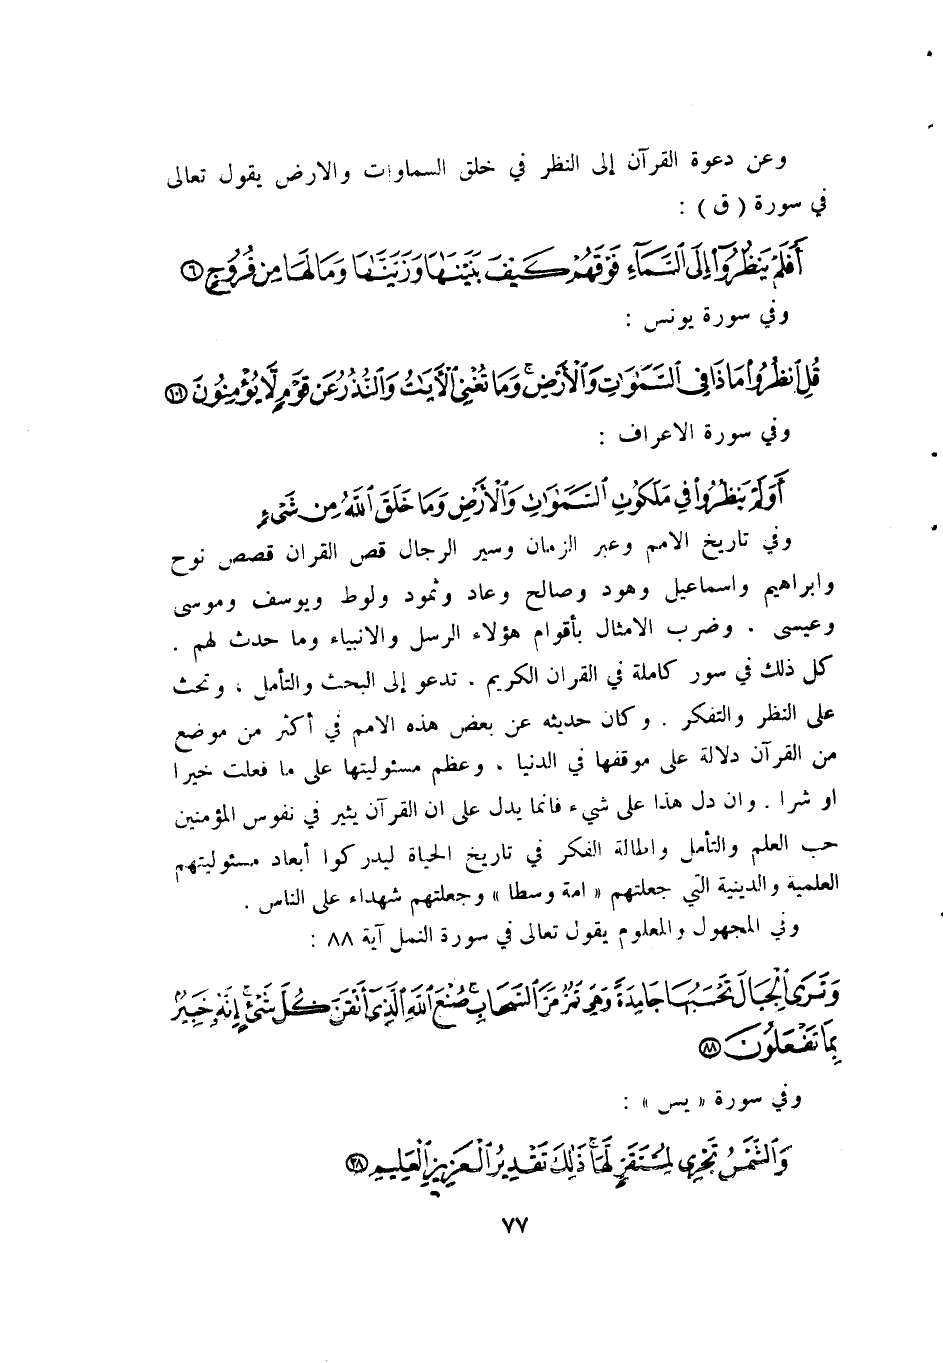 وعن دعوة القرآن إلى النظر في خلق السماوات والارض يقول تعالى
في سورة ( ق ) :
أَفَلَمْ يَنظُرُوٓا۟ إِلَى ٱلسَّمَآءِ فَوْقَهُمْ كَيْفَ بَنَيْنَٰهَا وَزَيَّنَّٰهَا وَمَا لَهَا مِن فُرُوجٍ ٦
وفي سورة يونس :
قُلِ ٱنظُرُوا۟ مَاذَا فِى ٱلسَّمَٰوَٰتِ وَٱلْأَرْضِ ۚ وَمَا تُغْنِى ٱلْأَيَٰتُ وَٱلنُّذُرُ عَن قَوْمٍ لَّا يُؤْمِنُونَ ١٠١
وفي سورة الاعراف :
أَوَلَمْ يَنظُرُوا۟ فِى مَلَكُوتِ ٱلسَّمَٰوَٰتِ وَٱلْأَرْضِ وَمَا خَلَقَ ٱللَّهُ مِن شَىْءٍ
وفي تاريخ الامم وعبر الزمان وسير الرجال قص القران قصص نوح
وابراهيم واسماعيل وهود وصالح وعاد وثمود ولوط ويوسف وموسى
وعيسى . وضرب الامثال بأقوام هؤلاء الرسل والانبياء وما حدث لهم .
كل ذلك في سور كاملة في القران الكريم . تدعو إلى البحث والتأمل ، وتحث
على النظر والتفكر . وكان حديثه عن بعض هذه الامم في أكثر من موضع
من القرآن دلالة على موقفها في الدنيا . وعظم مسئوليتها على ما فعلت خيرا
او شرا . وان دل هذا على شيء فانما يدل على ان القرآن يثير في نفوس المؤمنين
حب العلم والتأمل واطالة الفكر في تاريخ الحياة ليدركوا أبعاد مسئوليتهم
العلمية والدينية التي جعلتهم « امة وسطا » وجعلتهم شهداء على الناس .
وفي المجهول والمعلوم يقول تعالى في سورة النمل آية ٨٨ :
وَتَرَى ٱلْجِبَالَ تَحْسَبُهَا جَامِدَةً وَهِىَ تَمُرُّ مَرَّ ٱلسَّحَابِ ۚ صُنْعَ ٱللَّهِ ٱلَّذِىٓ أَتْقَنَ كُلَّ شَىْءٍ ۚ إِنَّهُۥ خَبِيرٌۢ
بِمَا تَفْعَلُونَ ٨٨
وفي سورة « يس » :
وَٱلشَّمْسُ تَجْرِى لِمُسْتَقَرٍّ لَّهَا ۚ ذَٰلِكَ تَقْدِيرُ ٱلْعَزِيزِ ٱلْعَلِيمِ ٣٨
٧٧